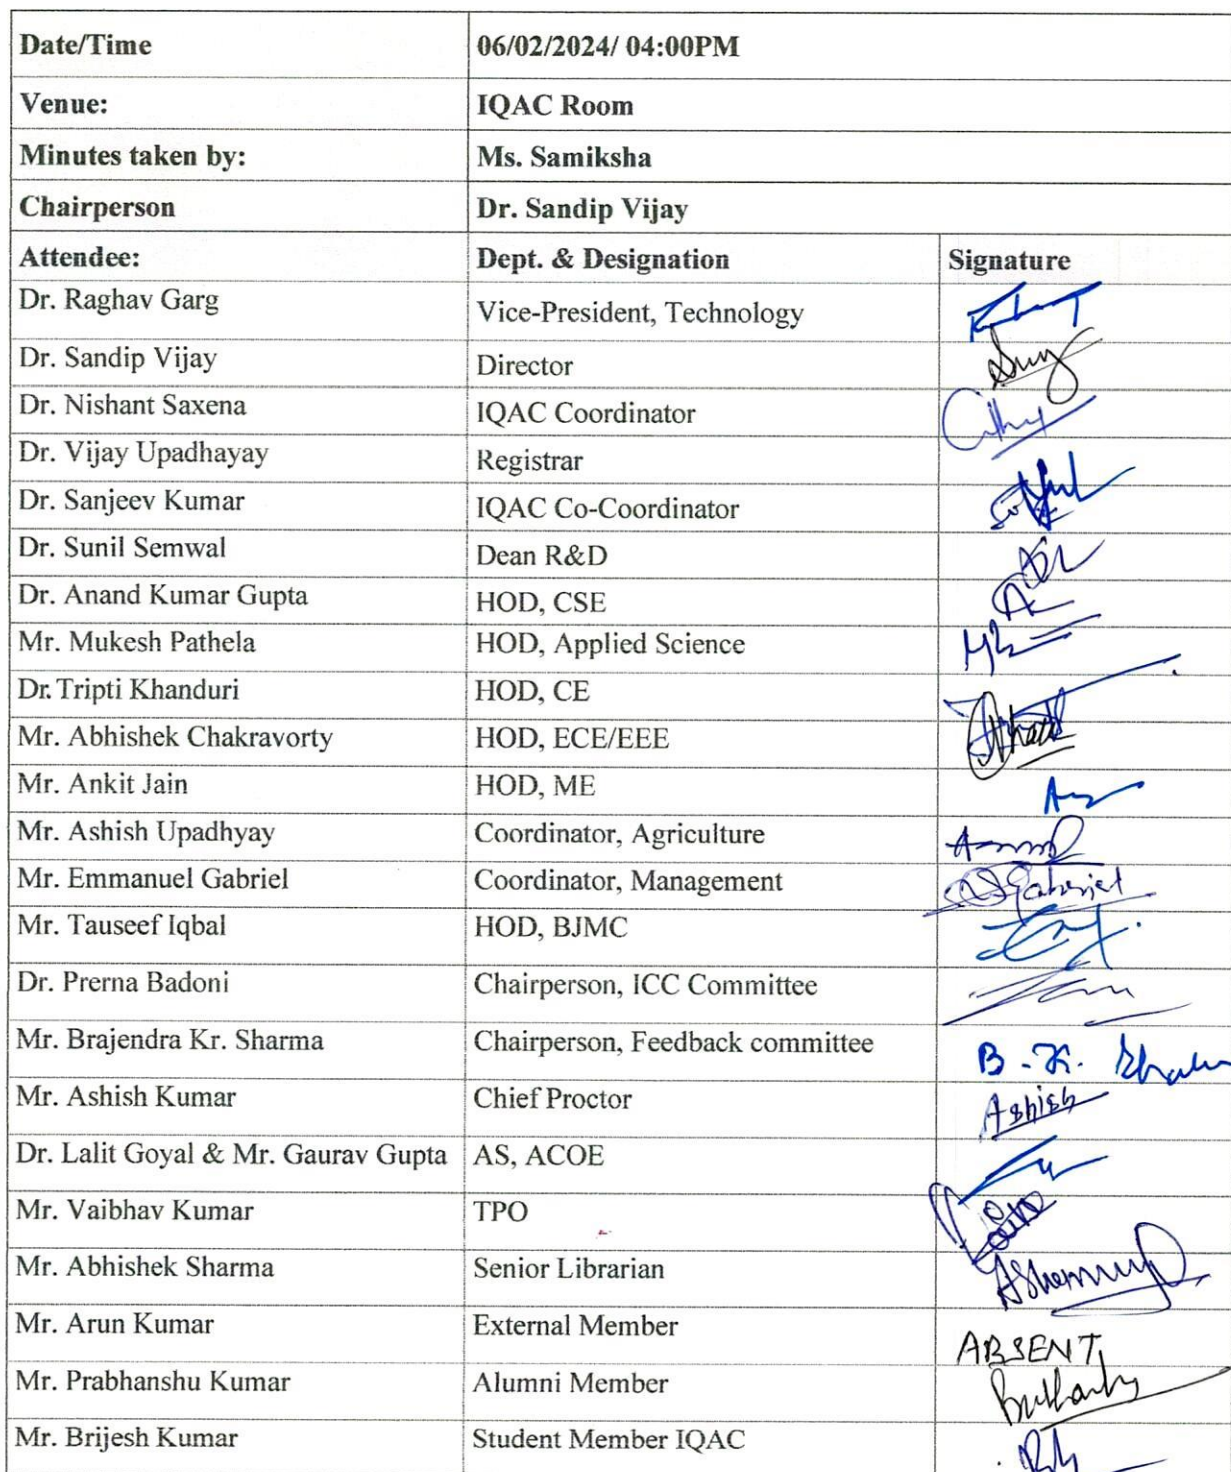 Date/Time 06/02/2024/ 04:00PM
Venue: IQAC Room
Minutes taken by: Ms. Samiksha
Chairperson Dr. Sandip Vijay
Attendee: Dept. & Designation Signature
Dr. Raghav Garg Vice-President, Technology
Dr. Sandip Vijay Director
Dr. Nishant Saxena IQAC Coordinator
Dr. Vijay Upadhayay Registrar
Dr. Sanjeev Kumar IQAC Co-Coordinator
Dr. Sunil Semwal Dean R&D
Dr. Anand Kumar Gupta HOD, CSE
Mr. Mukesh Pathela HOD, Applied Science
Dr. Tripti Khanduri HOD, CE
Mr. Abhishek Chakravorty HOD, ECE/EEE
Mr. Ankit Jain HOD, ME
Mr. Ashish Upadhyay Coordinator, Agriculture
Mr. Emmanuel Gabriel Coordinator, Management
Mr. Tauseef Iqbal HOD, BJMC
Dr. Prerna Badoni Chairperson, ICC Committee
Mr. Brajendra Kr. Sharma Chairperson, Feedback committee B. K.
Mr. Ashish Kumar Chief Proctor Ashish
Dr. Lalit Goyal & Mr. Gaurav Gupta AS, ACOE
Mr. Vaibhav Kumar TPO
Mr. Abhishek Sharma Senior Librarian
Mr. Arun Kumar External Member ABSENT
Mr. Prabhanshu Kumar Alumni Member
Mr. Brijesh Kumar Student Member IQAC